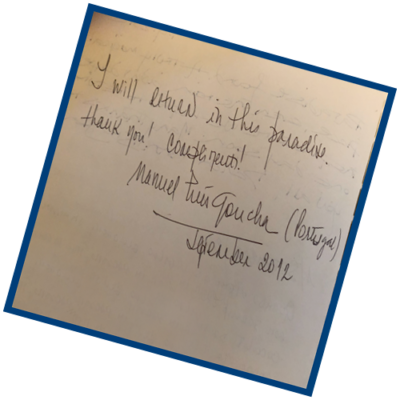 I will return in this paradise.
thank you! compliments!
Manuel Luis Goucha (Portugal)
September 2012